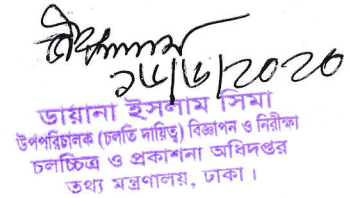 ১৬/৬/2020
ডায়ানা ইসলাম সিমা
উপপরিচালক (চলতি দায়িত্ব) বিজ্ঞাপন ও নিরীক্ষা
চলচ্চিত্র ও প্রকাশনা অধিদপ্তর
তথ্য মন্ত্রণালয়, ঢাকা।